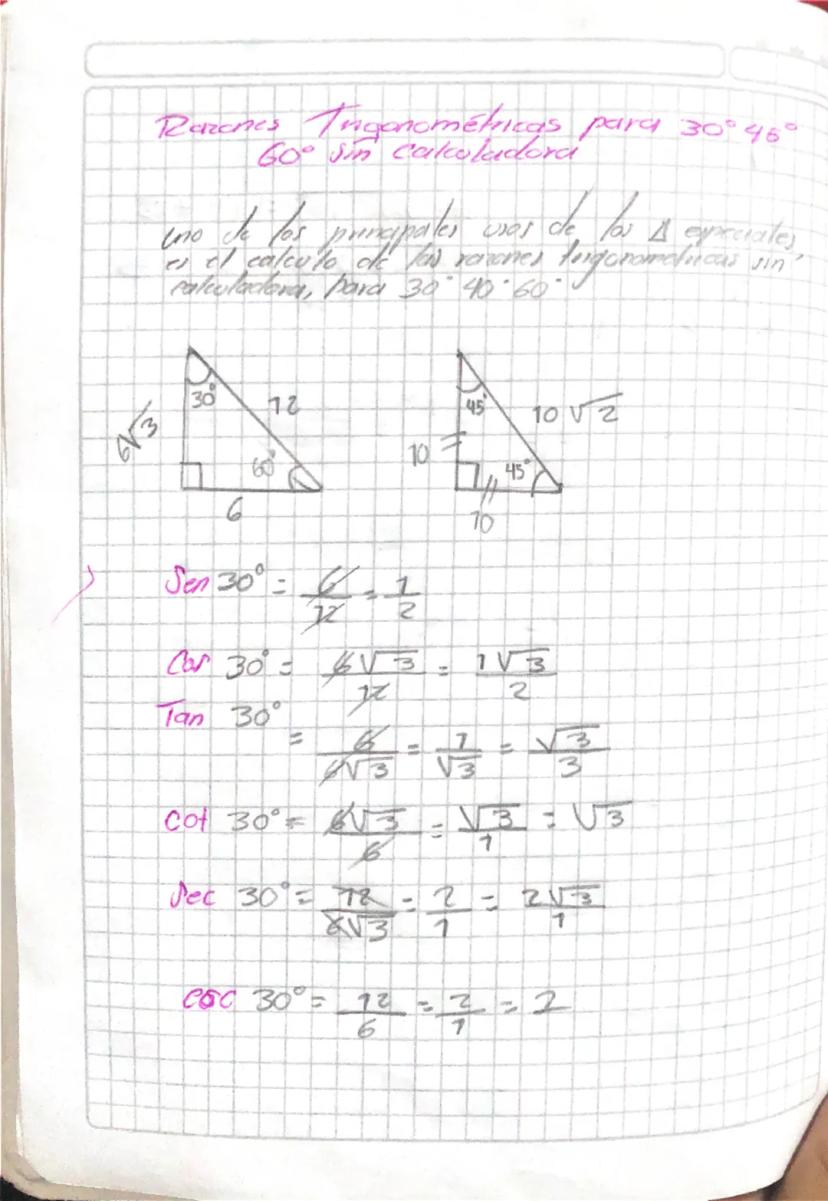 Razones Trigonométricas para 30° 45°
60° sin calculadora
uno de los principales usos de los Δ especiales
es el calculo de las razones trigonometricas sin
calculadora, para 30° 40° 60°
30°
12
6√3
60°
6
45°
10 √2
10
45°
10
Sen 30° = 6/12 = 1/2
Cos 30° = 6√3/12 = 1√3/2
Tan 30° = 6/6√3 = 1/√3 = √3/3
Cot 30° = 6√3/6 = √3/1 = √3
Sec 30° = 12/6√3 = 2/1 = 2√3/1
csc 30° = 12/6 = 2/1 = 2